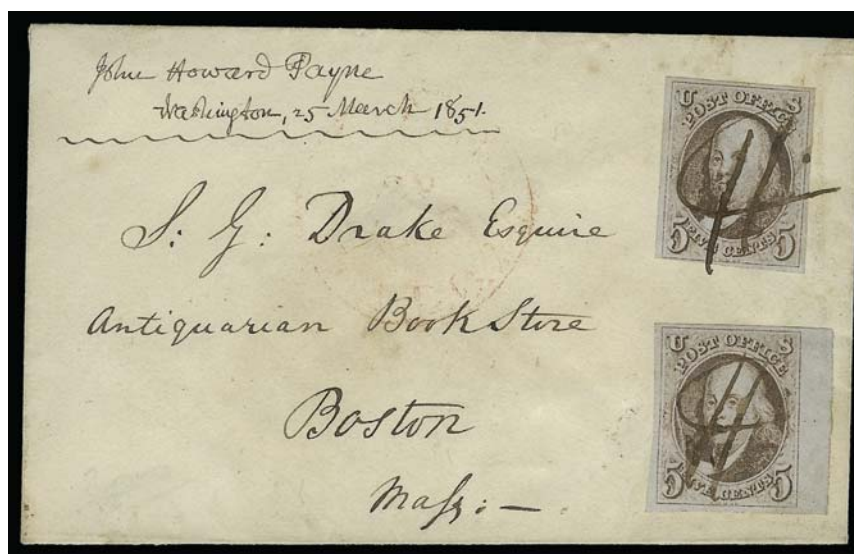 John Howard Payne
Washington, 25 March 1851.
S. G: Drake Esquire
Antiquarian Book Store
Boston
Mass: —
U S
POST OFFICE
FIVE CENTS
5 5
U S
POST OFFICE
FIVE CENTS
5 5